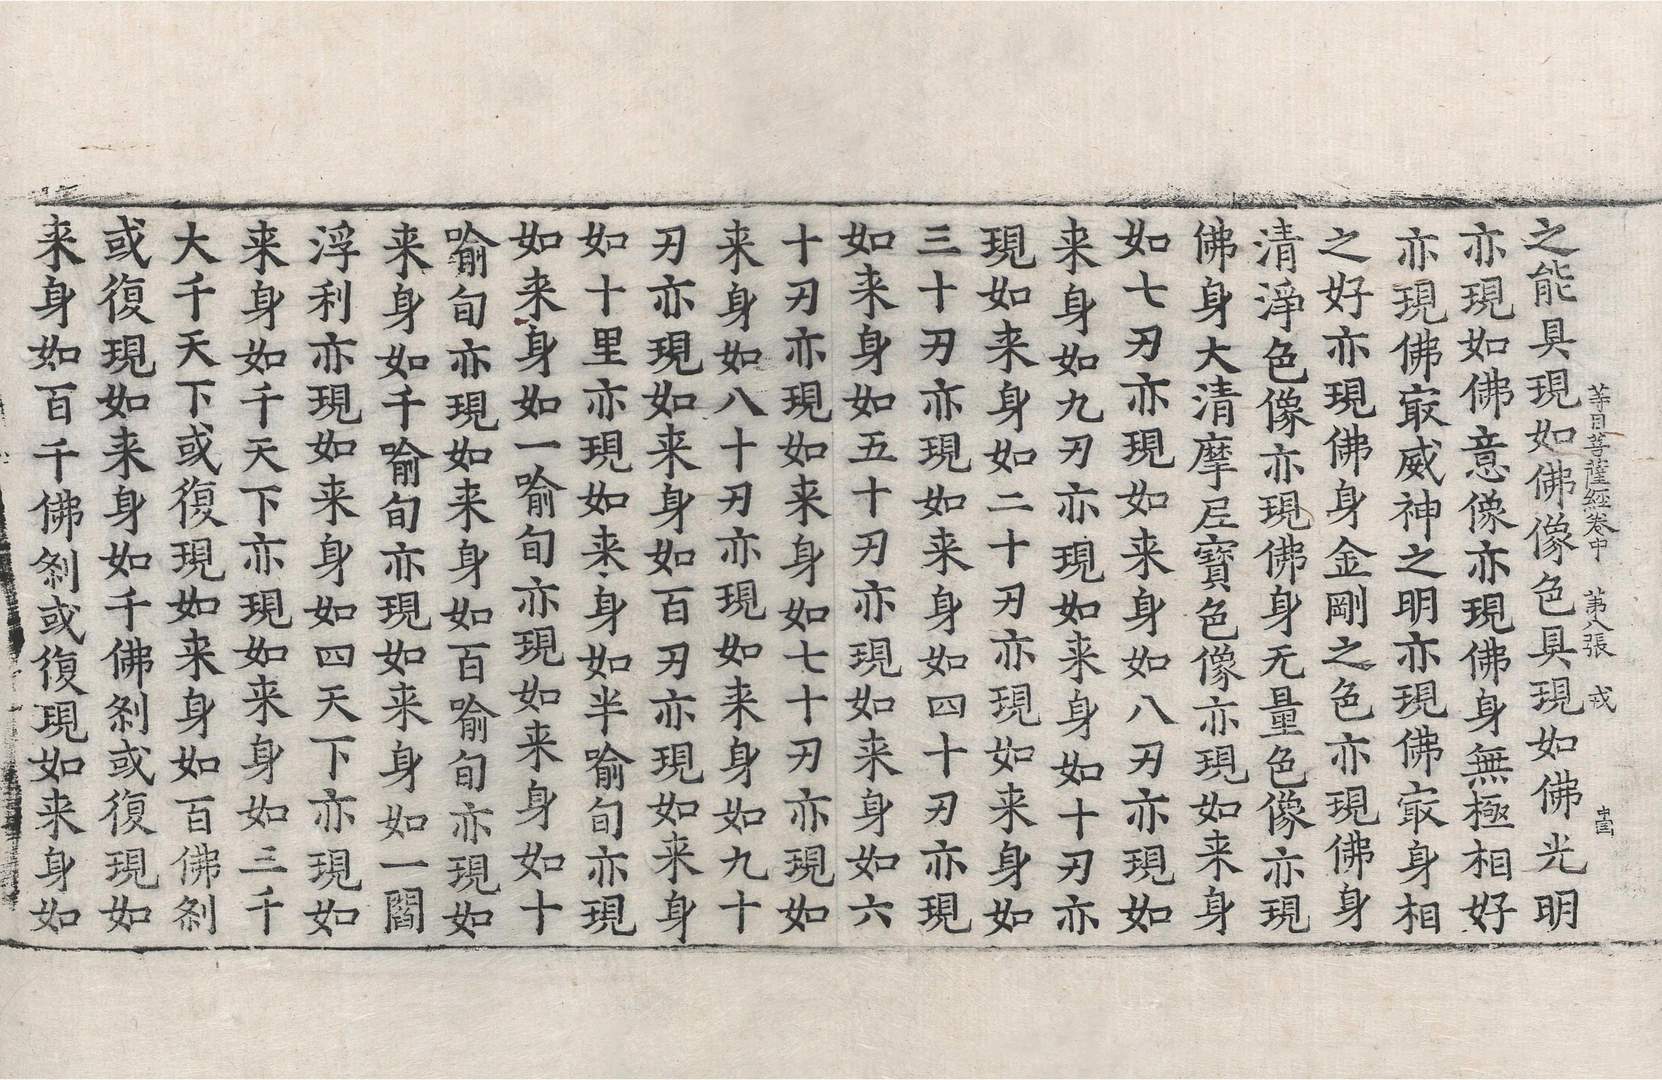 䒭目菩薩經卷中 苐八張 戎
之能具現如佛像色具現如佛光明
亦現如佛意像亦現佛身無極相好
亦現佛㝡威神之明亦現佛㝡身相
之好亦現佛身金剛之色亦現佛身
清淨色像亦現佛身无量色像亦現
佛身大清摩尼寶色像亦現如来身
如七刃亦現如来身如八刃亦現如
来身如九刃亦現如来身如十刃亦
現如来身如二十刃亦現如来身如
三十刃亦現如来身如四十刃亦現
如来身如五十刃亦現如来身如六
十刃亦現如来身如七十刃亦現如
来身如八十刃亦現如来身如九十
刃亦現如来身如百刃亦現如来身
如十里亦現如来身如半喻旬亦現
如来身如一喻旬亦現如来身如十
喻旬亦現如来身如百喻旬亦現如
来身如千喻旬亦現如来身如一閻
浮利亦現如来身如四天下亦現如
来身如千天下亦現如来身如三千
大千天下或復現如来身如百佛剎
或復現如来身如千佛剎或復現如
来身如百千佛剎或復現如来身如